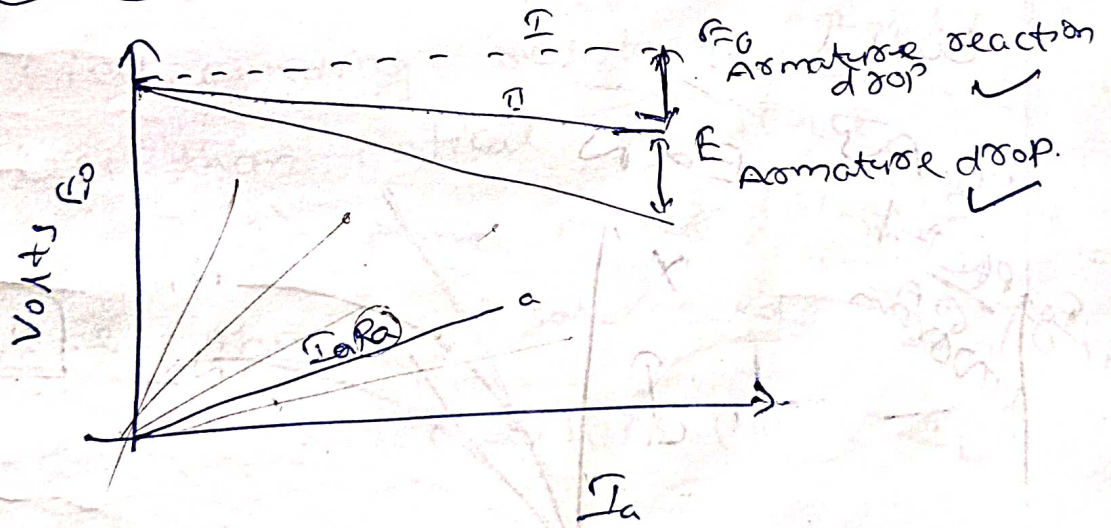 I
E0
Armature reaction
drop
II
E
Armature drop.
Volts E0
a
IaRa
Ia